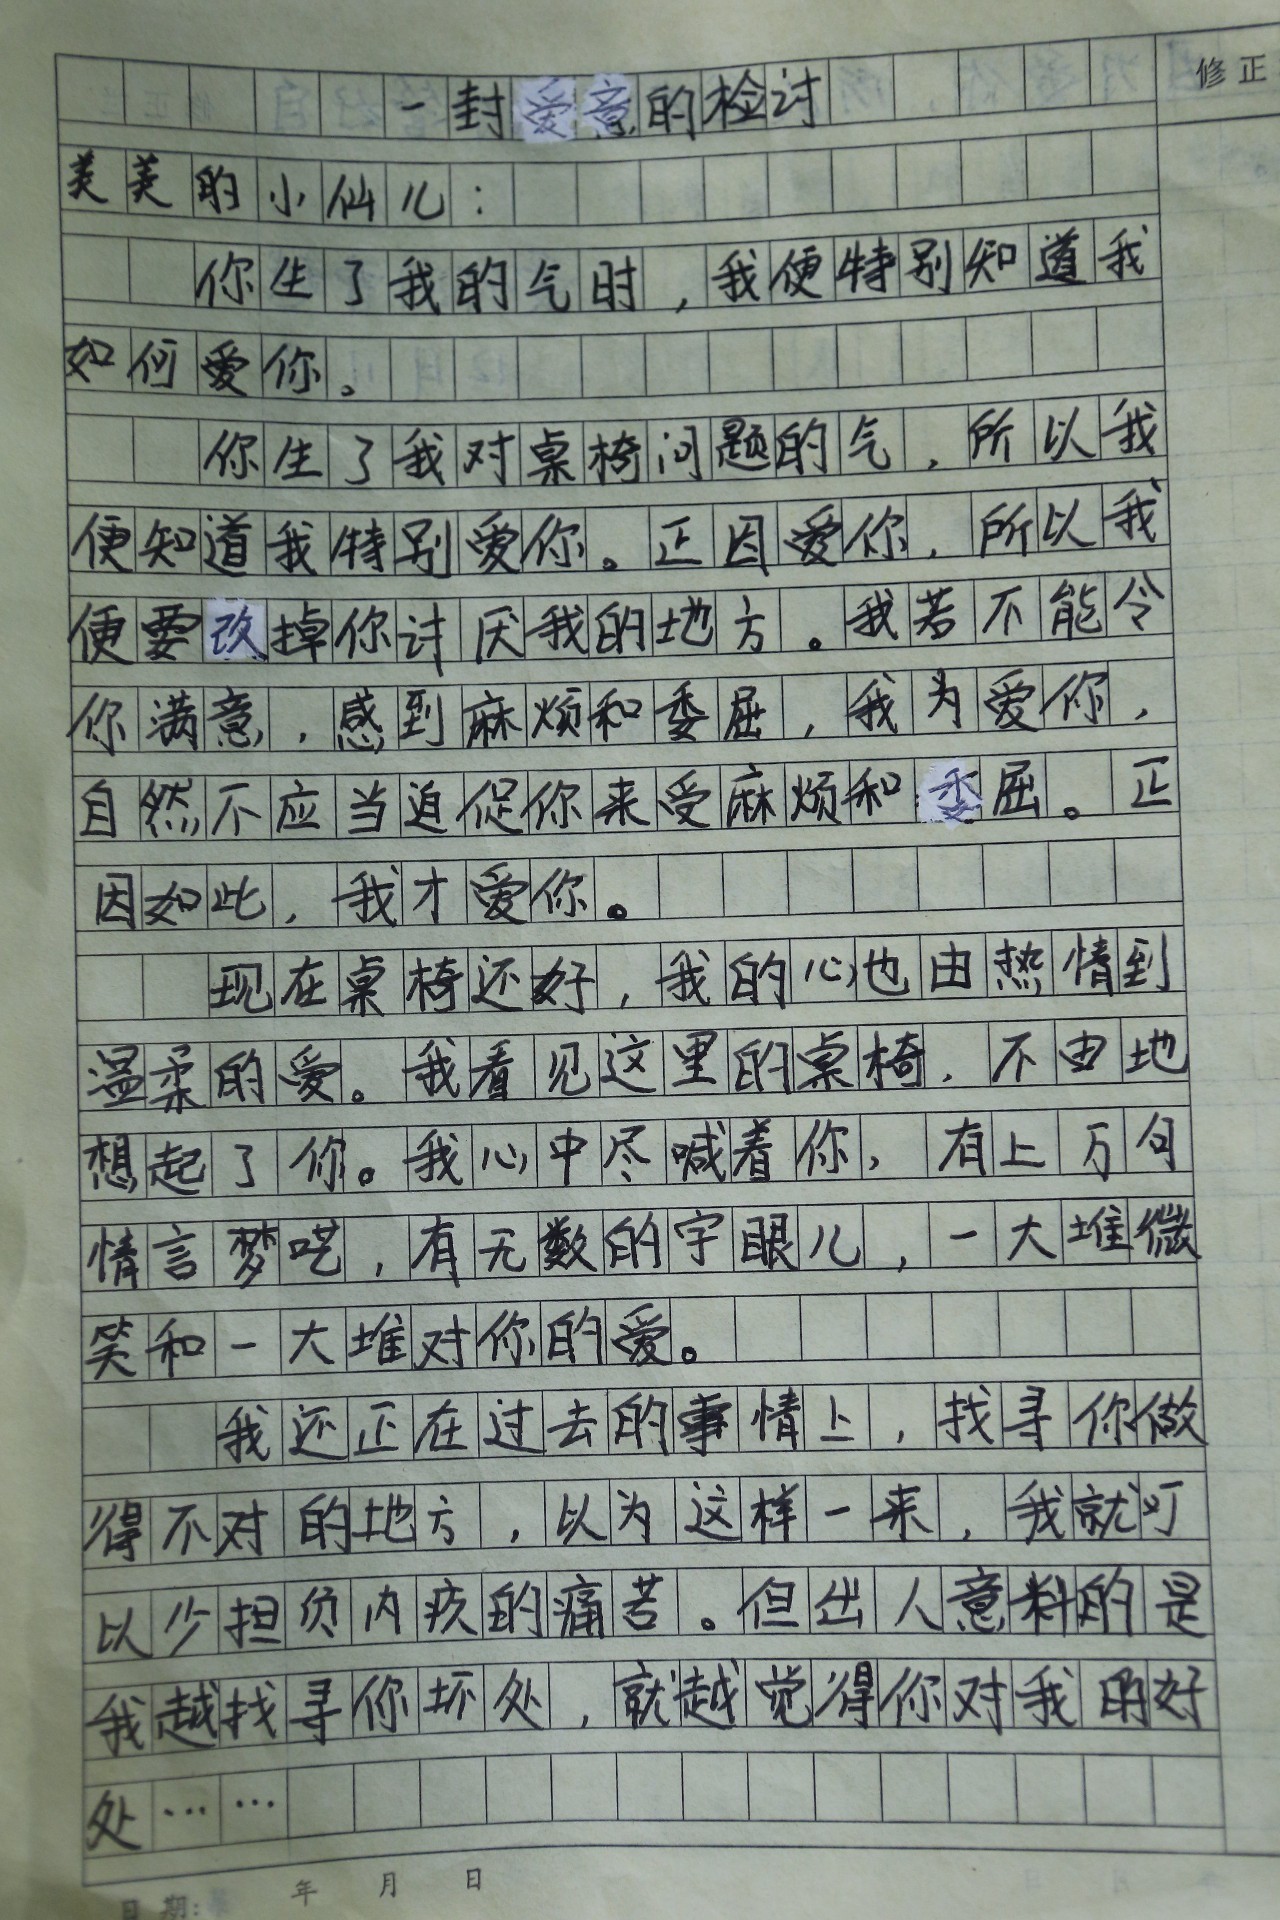 一封爱意的检讨
修正
美美的小仙儿：
你生了我的气时，我便特别知道我
如何爱你。
你生了我对桌椅问题的气，所以我
便知道我特别爱你。正因爱你，所以我
便要改掉你讨厌我的地方。我若不能令
你满意，感到麻烦和委屈，我为爱你，
自然不应当迫促你来受麻烦和委屈。正
因如此，我才爱你。
现在桌椅还好，我的心也由热情到
温柔的爱。我看见这里的桌椅，不由地
想起了你。我心中尽喊着你，有上万句
情言梦呓，有无数的字眼儿，一大堆微
笑和一大堆对你的爱。
我还正在过去的事情上，找寻你做
得不对的地方，以为这样一来，我就可
以少担负内疚的痛苦。但出人意料的是
我越找寻你坏处，就越觉得你对我的好
处……
日期：年月日